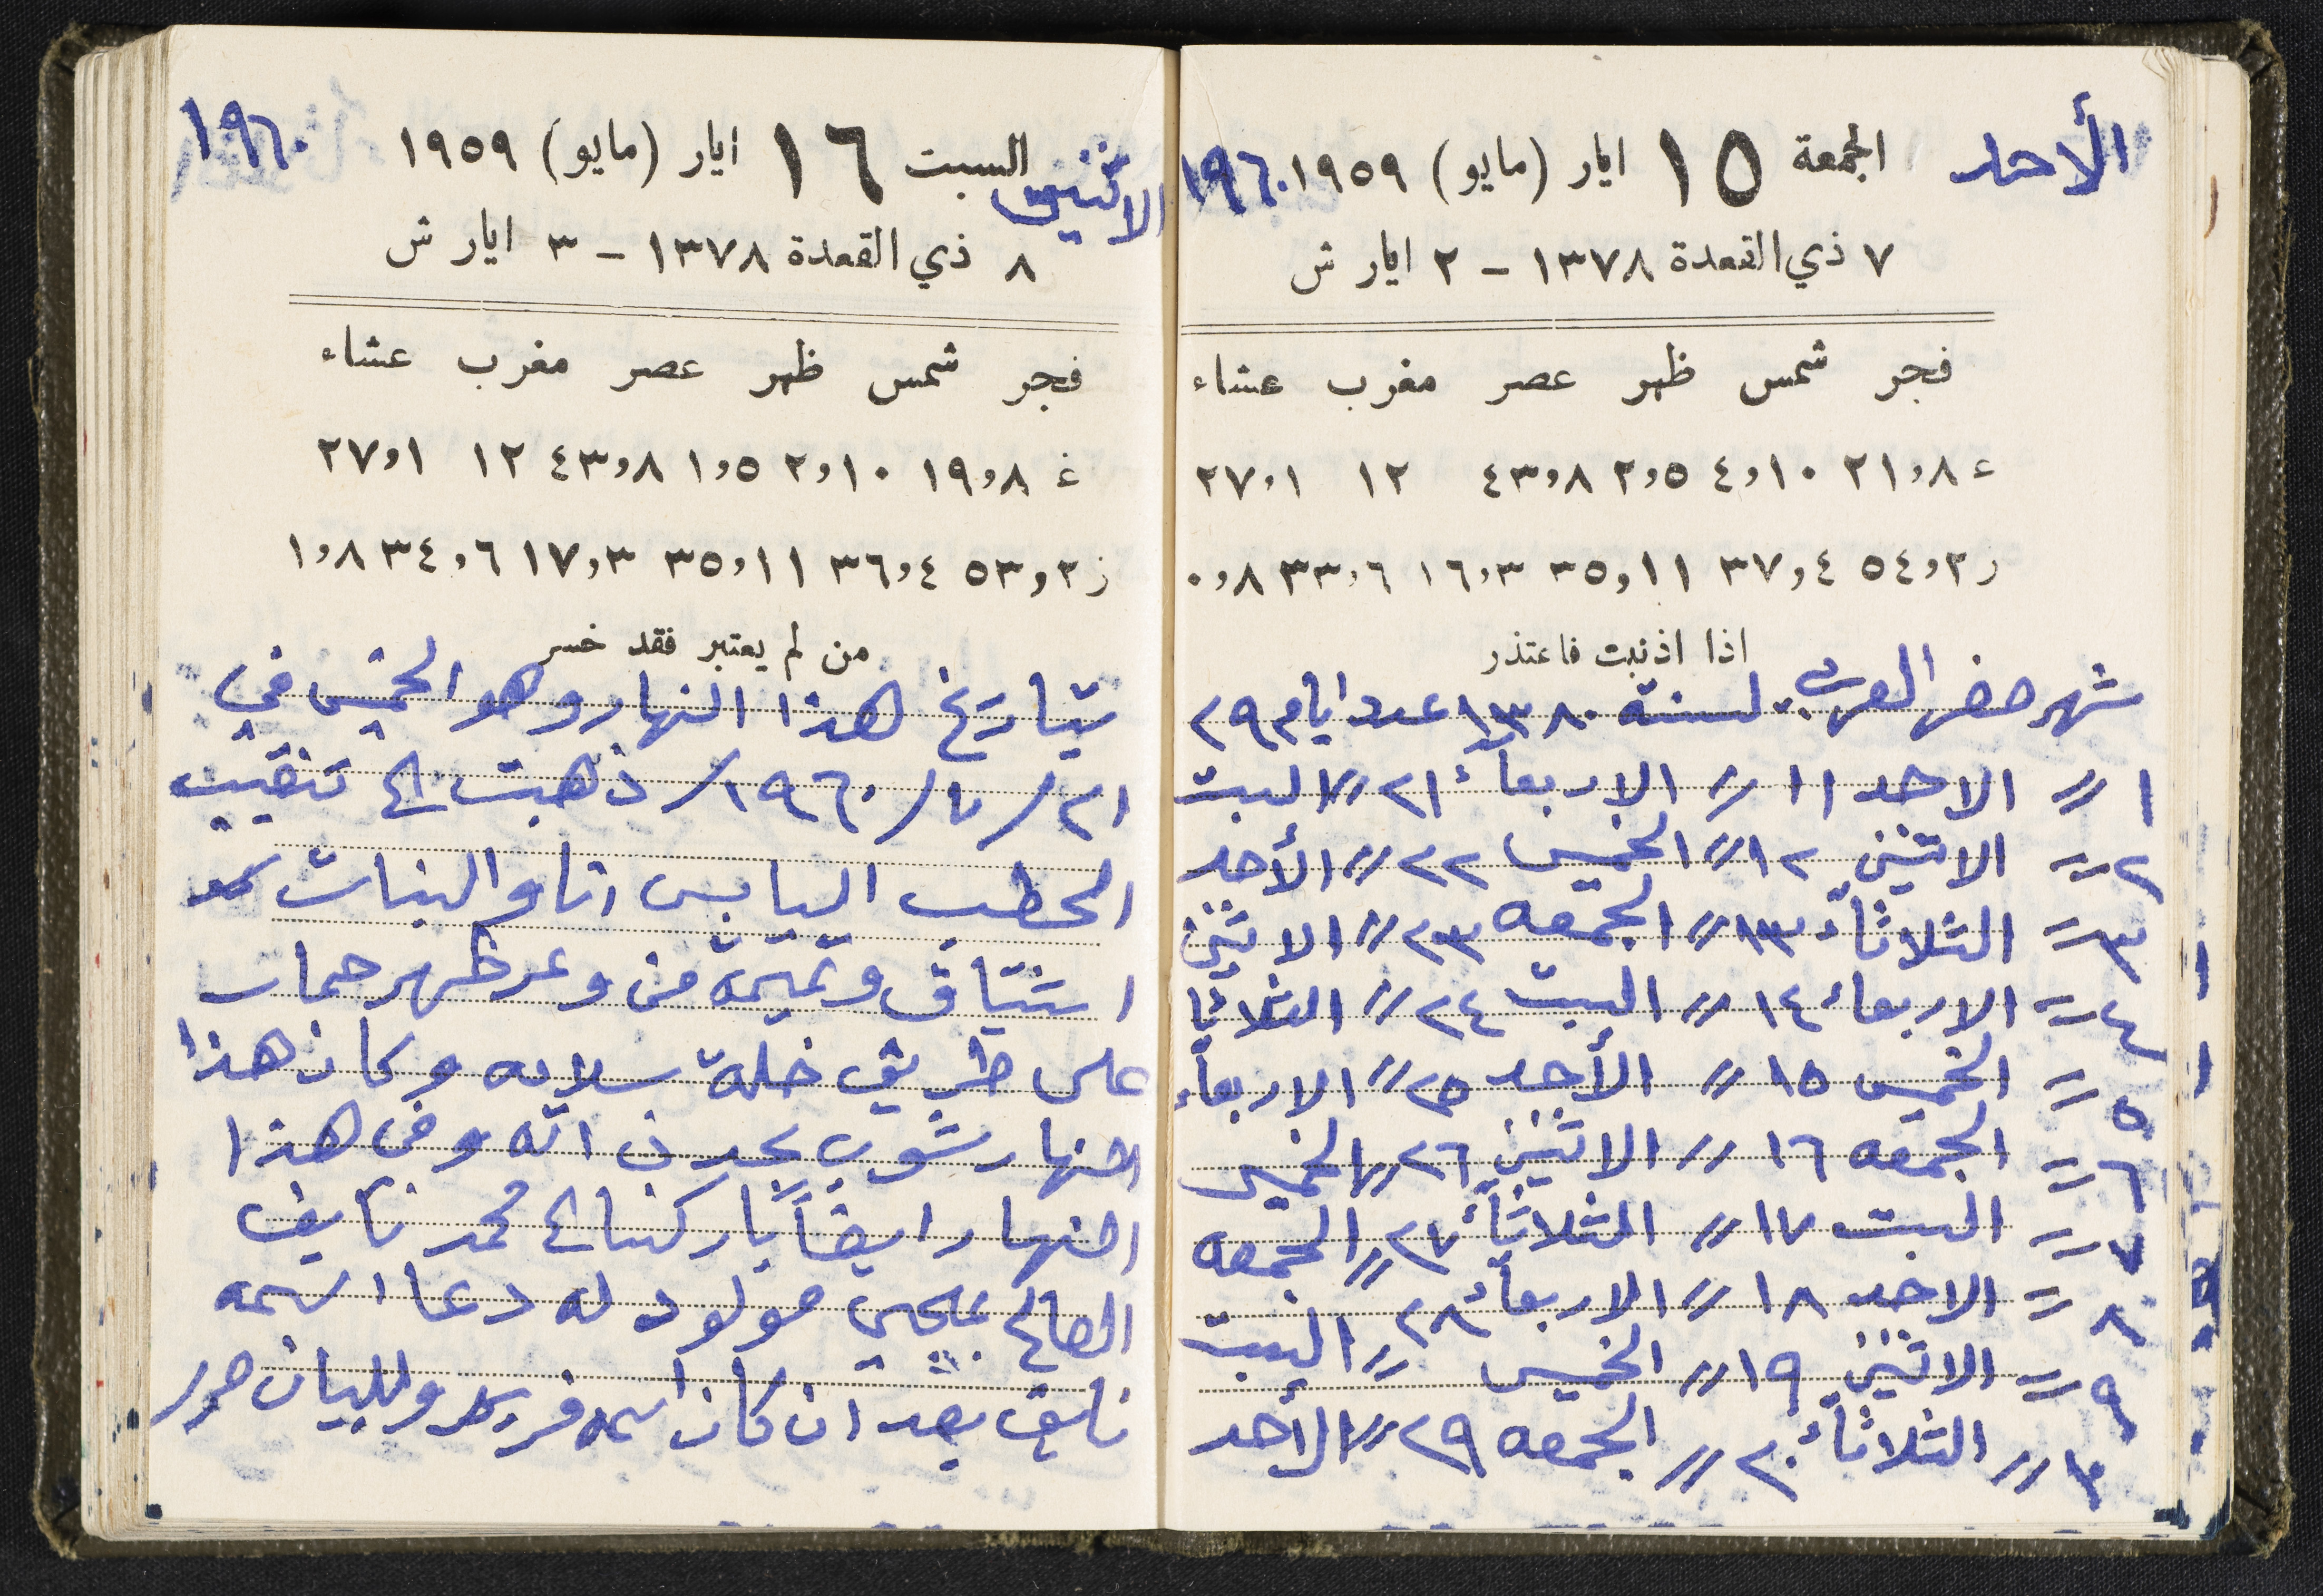 الأحد الجمعة ١٥ ايار (مايو) ١٩٥٩ ١٩٦٠
٧ ذي القعدة ١٣٧٨ – ٢ ايار ش
فجر شمس ظهر عصر مغرب عشاء
ع ٢١،٨ ٤،١٠ ٢،٥ ٤٣،٨ ١٢ ٢٧،١
ز ٥٤،٢ ٣٧،٤ ٣٥،١١ ١٦،٣ ٣٣،٦ ٠،٨
اذا اذنبت فاعتذر
شهر صفر العربي لسنة ١٣٨٠ عدد ايام ٢٩
١ // الاحد ١١ // الاربعاء ٢١ // السبت
٢ // الاثنين ١٢ // الخميس ٢٢ // الأحد
٣ // الثلاثاء ١٣ // الجمعه ٢٣ // الاثنين
٤ // الاربعاء ١٤ // السبت ٢٤ // الثلاثا
٥ // الخميس ١٥ // الأحد ٢٥ // الاربعاء
٦ // الجمعه ١٦ // الاثنين ٢٦ // الخميس
٧ // السبت ١٧ // الثلاثاء ٢٧ // الجمعه
٨ // الاحد ١٨ // الاربعاء ٢٨ // السبت
٩ // الاثنين ١٩ // الخميس
١٠ // الثلاثاء ٢٠ // الجمعه ٢٩ // الأحد
الاثنين السبت ١٦ ايار (مايو) ١٩٥٩ ١٩٦٠
٨ ذي القعدة ١٣٧٨ – ٣ ايار ش
فجر شمس ظهر عصر مغرب عشاء
غ ١٩،٨ ٢،١٠ ١،٥ ٤٣،٨ ١٢ ٢٧،١
ز ٥٣،٢ ٣٦،٤ ٣٥،١١ ١٧،٣ ٣٤،٦ ١،٨
من لم يعتبر فقد خسر
بتاريخ هذا النهار وهو الخميس في
٢١/٧/١٩٦٠/ ذهبت الى تنقيب
الحطب اليابس انا والبنات
اشتياق وتميمة من وعر ظهر حمار
على طريق خلة سلايه وكان هذا
النهار شوب وفي هذا
النهار ايضاً باركنا الى محمد نايف
الصالح بمجي مولود له دعا اسمه
نايف بعد ان كان اسمه فريد وللبيان حرر